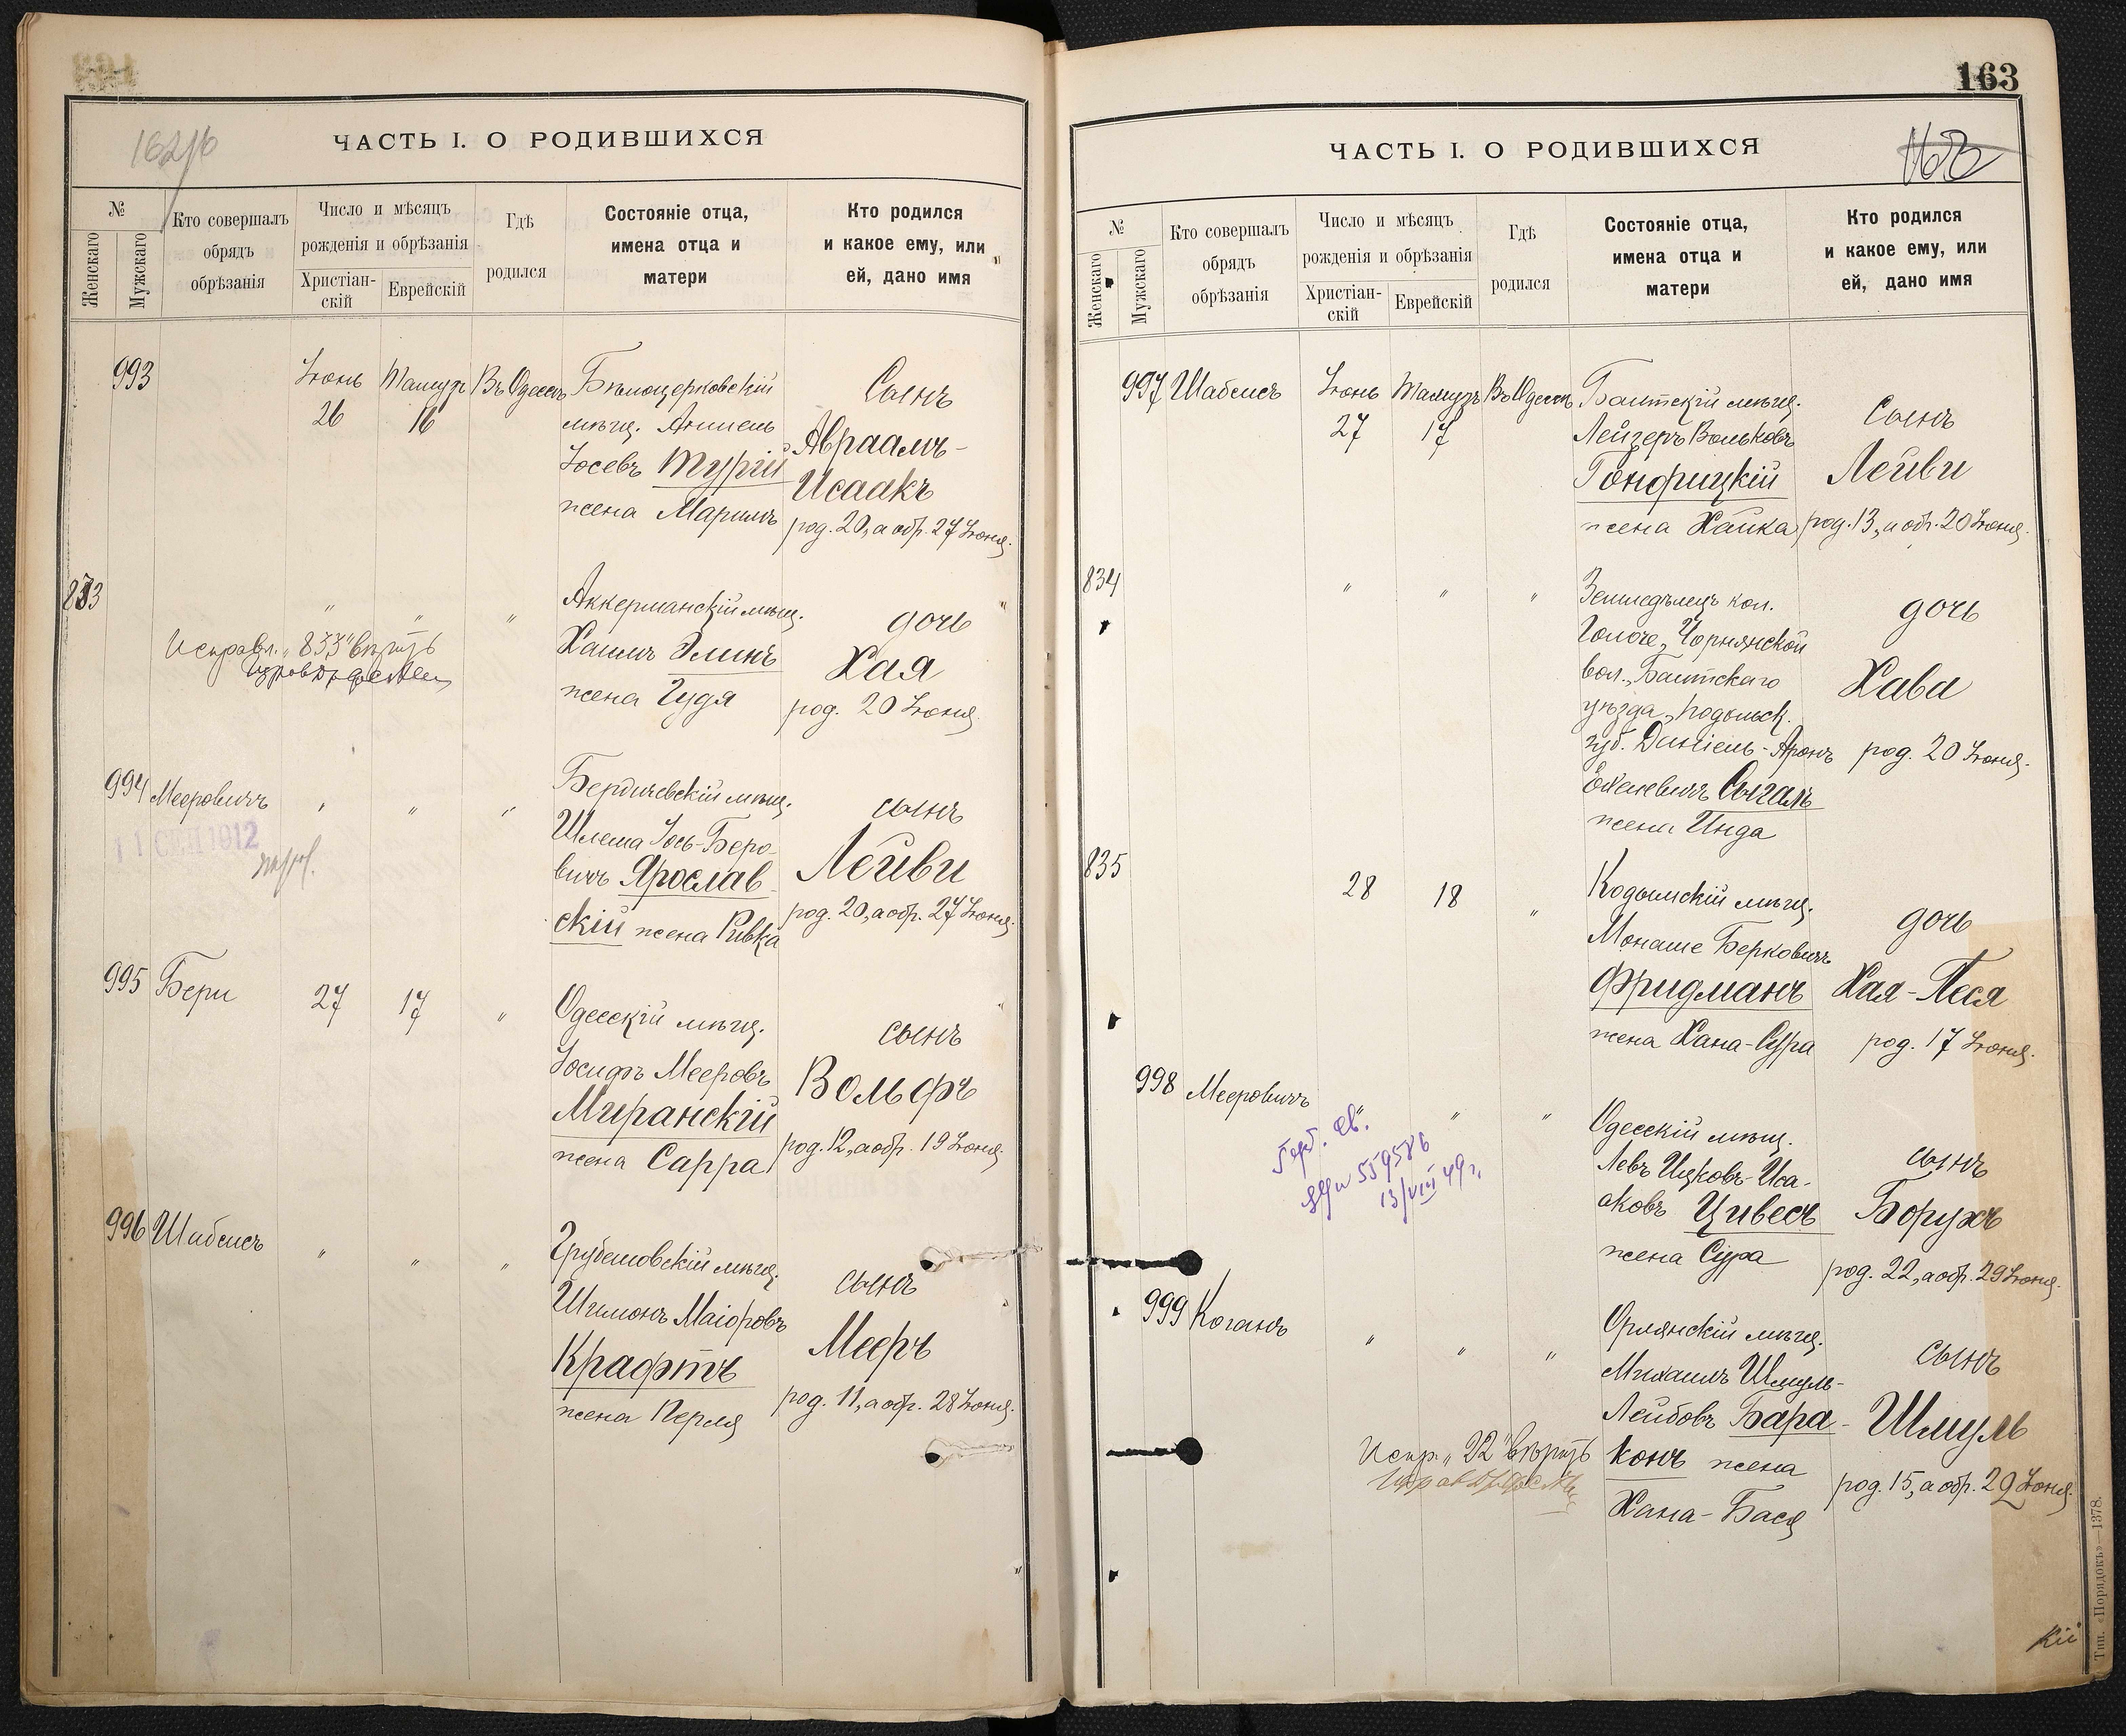 162/б
ЧАСТЬ I. О РОДИВШИХСЯ
№
Женскаго
Мужскаго
Кто совершалъ
обрядъ
обрѣзанія
Число и мѣсяцъ
рожденія и обрѣзанія
Христіан-
скій
Еврейскій
Гдѣ
родился
Состояніе отца,
имена отца и
матери
Кто родился
и какое ему, или
ей, дано имя
993
Іюнь
26
Тамузъ
16
Въ Одессѣ
Бѣлоцерковскій
мѣщ. Аншель
Іосевъ Турій
жена Маримъ
Сынъ
Авраамъ-
Исаакъ
род. 20, а обр. 27 Іюня.
833
" " "
Исправл. "833" вѣрить
Аккерманскій мѣщ.
Хаимъ Элинъ
жена Гудя
дочь
Хая
род. 20 Іюня.
994
Мееровичъ
" " "
11 СЕН 1912
Бердичевскій мѣщ.
Шлема Іось-Беро-
вичъ Ярослав-
скій жена Ривка
сынъ
Лейви
род. 20, а обр. 27 Іюня.
995
Бери
27
17
"
Одесскій мѣщ.
Іосифъ Мееровъ
Миранскій
жена Сарра
сынъ
Вольфъ
род. 12, а обр. 19 Іюня.
996
Шабсисъ
" " "
Грубешовскій мѣщ.
Шимонъ Маіоровъ
Крафтъ
жена Перля
сынъ
Мееръ
род. 11, а обр. 28 Іюня.
163
163
ЧАСТЬ I. О РОДИВШИХСЯ
№
Женскаго
Мужскаго
Кто совершалъ
обрядъ
обрѣзанія
Число и мѣсяцъ
рожденія и обрѣзанія
Христіан-
скій
Еврейскій
Гдѣ
родился
Состояніе отца,
имена отца и
матери
Кто родился
и какое ему, или
ей, дано имя
997
Шабсисъ
Іюнь
27
Тамузъ
17
Въ Одессѣ
Балтскій мѣщ.
Лейзеръ Вольковъ
Гонфицкій
жена Хайка
Сынъ
Лейви
род. 13, а обр. 20 Іюня.
834
" " "
Земледѣлецъ кол.
Чорнянской
вол., Балтскаго
уѣзда, Подольск.
губ. Даніель-Аронъ
Сыгалъ
жена Инда
дочь
Хава
род. 20 Іюня.
835
28
18
"
Кодымскій мѣщ.
Монаше Берковичъ
Фридманъ
жена Хана-Сура
дочь
Хая-Песя
род. 17 Іюня.
998
Мееровичъ
" " "
св.
559586
13/VIII 49 г.
Одесскій мѣщ.
Левъ Ицковъ-Иса-
аковъ Цивесъ
жена Сура
сынъ
Борухъ
род. 22, а обр. 29 Іюня.
999
Коганъ
" " "
Орлянскій мѣщ.
Михаилъ Шмуль-
Лейбовъ Бара-
конъ жена
Хана-Бася
сынъ
Шмуль
род. 15, а обр. 22 Іюня.
Испр. "22" вѣрить
кій
Тип. «Порядокъ»—1378.